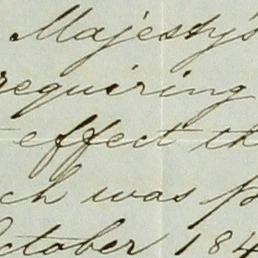 Majesty's
requiring
effect th
ch was p
ctober 184